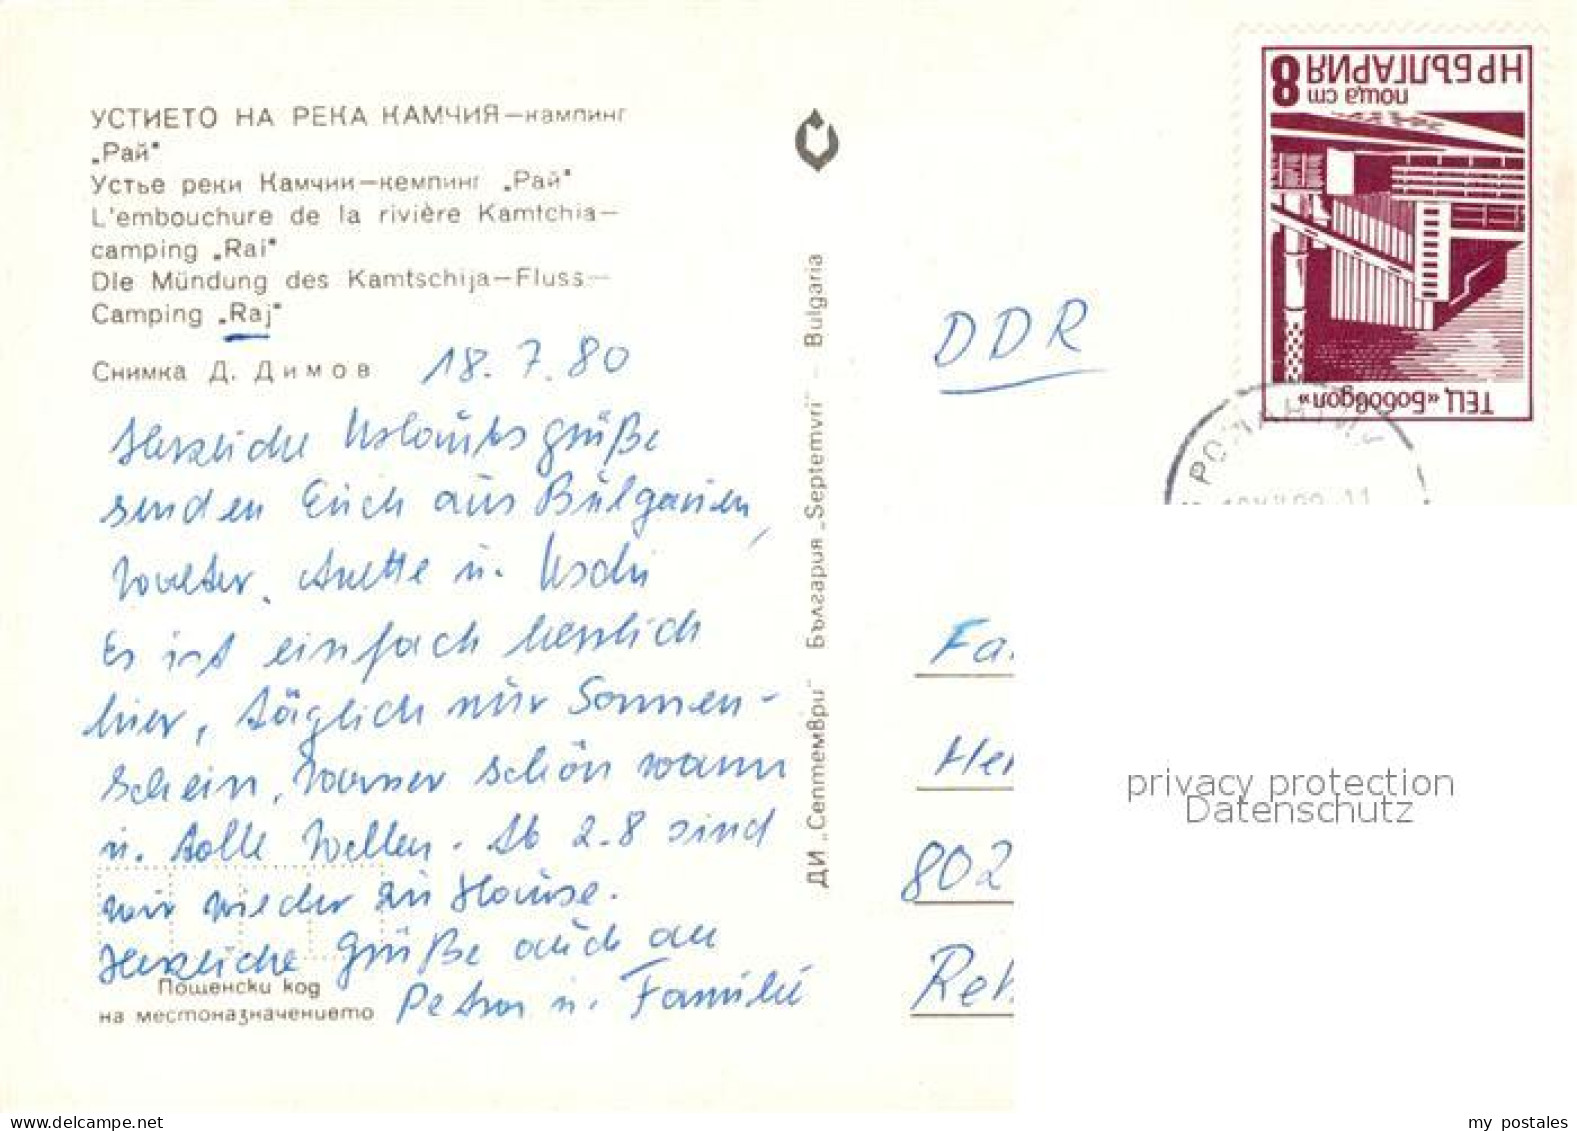 УСТИЕТО НА РЕКА КАМЧИЯ—кампинг
„Рай"
Устье реки Камчии—кемпинг „Рай"
L'embouchure de la rivière Kamtchia—
camping „Rai"
Die Mündung des Kamtschija—Fluss—
Camping „Raj"
Снимка Д. Димов
18.7.80
Herzliche Urlaubsgrüße
senden Euch aus Bulgarien,
Walter, Anette u. Uschi
Es ist einfach herrlich
hier, täglich nur Sonnen-
schein, Wasser schön warm
u. tolle Wellen. Ab 2.8 sind
wir wieder zu Hause.
Herzliche Grüße auch an
Petra u. Familie
Пощенски код
на местоназначението
ДИ „Септември" България „Septemvri" – Bulgaria
НР БЪЛГАРИЯ
поща ст 8
ТЕЦ «Бобовдол»
DDR
Fa
He
802
Re
privacy protection
Datenschutz
my postales